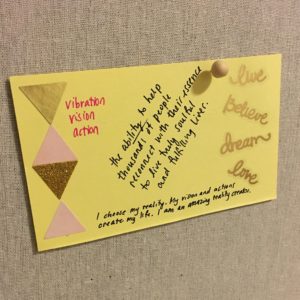 vibration
vision
action
the ability to help
thousands of people
reconnect with their essence
to live truly soulful
and fulfilling lives.
live
believe
dream
love
I choose my reality. My vision and actions
create my life. I am an amazing reality creator.